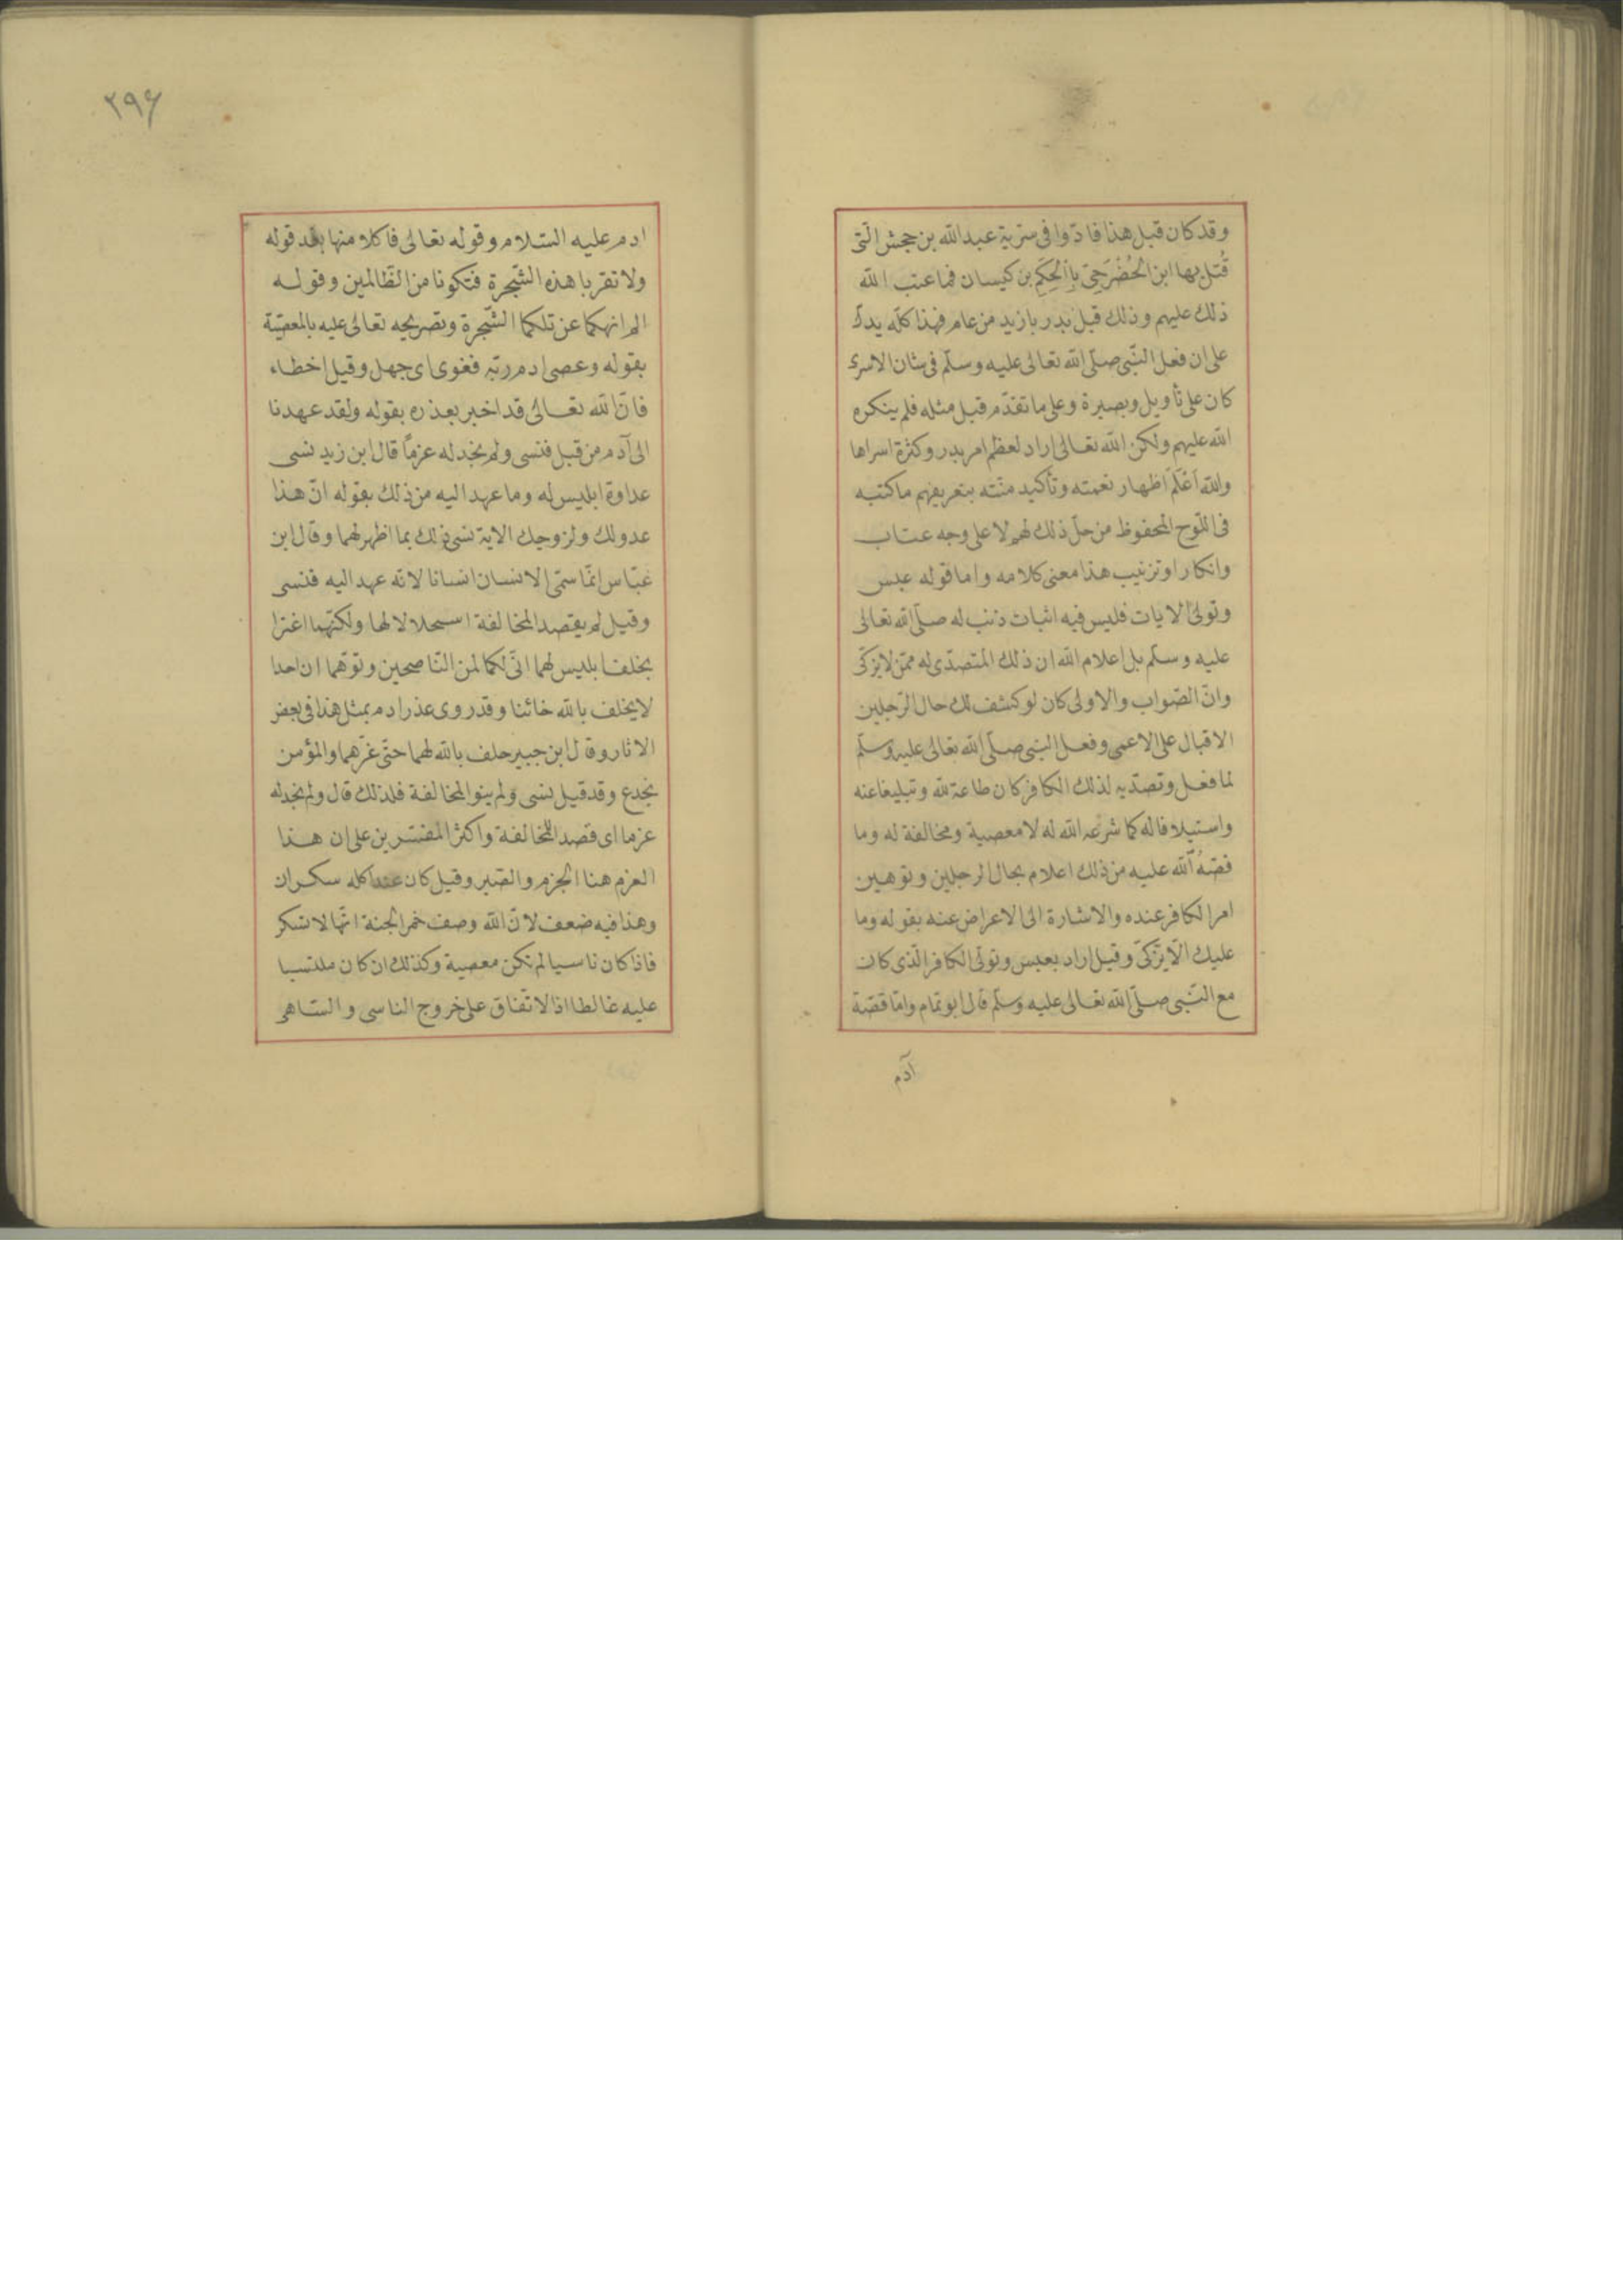 وقد كان قبل هذا فادّوا فى سرية عبدالله بن جحش التى
قُتل بها ابن الحُضْرَجِىّ بِالْحَكِمِ بن كيسان فما عتب الله
ذلك عليهم وذلك قبل بدر بازيد من عام فهذا كلّه يدلّ
على ان فعل النّبى صلّى الله تعالى عليه وسلّم فى شان الاسرى
كان على تأويل وبصيرة وعلى ما تقدّم قبل مثله فلم ينكره
الله عليهم ولكن الله تعالى اراد لعظم امر بدر وكثرة اسراها
والله اَعْلَمَ اظهار نعمته وتأكيد منّته بتعريفهم ما كتبه
فى اللّوح المحفوظ من حلّ ذلك لهم لا على وجه عتاب
وانكار اوتزنيب هذا معنى كلامه واما قوله عبس
وتولّى الايات فليس فيه اثبات ذنب له صلّى الله تعالى
عليه وسلّم بل اعلام الله ان ذلك المتصدّى له ممّن لا يزكّى
وانّ الصّواب والاولى كان لو كشف لك حال الرّجلين
الاقبال على الاعمى وفعل النبى صلّى الله تعالى عليه وسلّم
لما فعل وتصدّيه لذلك الكافر كان طاعة لله وتبليغا عنه
واستيلافا له كما شرعه الله له لا معصية ومخالفة له وما
قصّهُ الله عليه من ذلك اعلام بحال الرجلين وتوهين
امر الكافر عنده والاشارة الى الاعراض عنه بقوله وما
عليك الّا يزّكىّ وقيل اراد بعبس وتولّى الكافر الّذى كان
مع النّبى صلّى الله تعالى عليه وسلّم قال ابو تمام وامّا قصّة
آدم
٢٩۶
ادم عليه السّلام وقوله تعالى فاكلا منها بعد قوله
ولا تقربا هذه الشّجرة فتكونا من الظّالمين وقوله
الم انهكما عن تلكما الشّجرة وتصريحه تعالى عليه بالمعصيّة
بقوله وعصى ادم ربّه فغوى اى جهل وقيل اخطاء
فانّ الله تعالى قد اخبر بعذره بقوله ولقد عهدنا
الى آدم من قبل فنسى ولم نجد له عزماً قال ابن زيد نسى
عداوة ابليس له وما عهد اليه من ذلك بقوله انّ هذا
عدو لك ولزوجك الاية نسى ذلك بما اظهر لهما وقال ابن
عبّاس انّما سمّى الانسان انسانا لانه عهد اليه فنسى
وقيل لم يقصد المخالفة استحلالا لها ولكنّهما اغترا
بحلف ابليس لهما انّى لكما لمن النّاصحين وتوّهما ان احدا
لا يحلف بالله خائنا وقد روى عذر ادم بمثل هذا فى بعض
الاثار وقال ابن جبير حلف بالله لهما حتّى غرّهما والمؤمن
يخدع وقد قيل نسى ولم ينو المخالفة فلذلك قال ولم نجد له
عزما اى قصد اللمخالفة واكثر المفسّرين على ان هذا
العزم هنا الجزم والصّبر وقيل كان عند اكله سكران
وهذا فيه ضعف لانّ الله وصف خمر الجنة انّها لا تسكر
فاذا كان ناسيا لم تكن معصية وكذلك ان كان ملتبسا
عليه غالطا اذ الاتّفاق على خروج الناسى والسّاهى